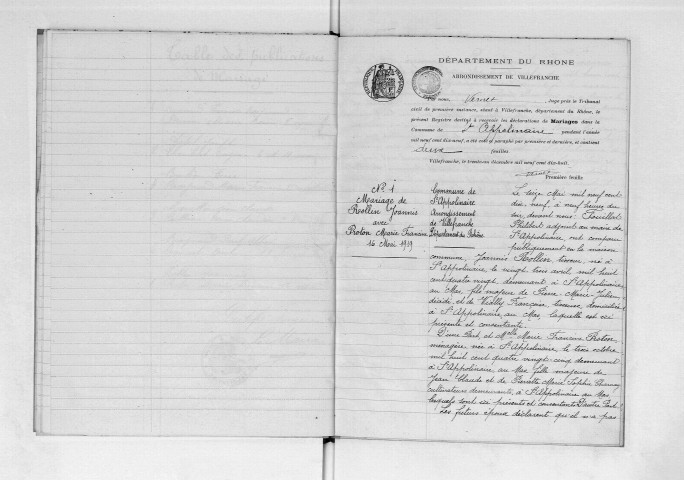 Table des publications
de mariage
DÉPARTEMENT DU RHONE
ARRONDISSEMENT DE VILLEFRANCHE
Par nous, Vernet, Juge près le Tribunal
civil de première instance, séant à Villefranche, département du Rhône, le
présent Registre destiné à recevoir les déclarations de Mariages dans la
Commune de St Appolinaire pendant l'année
mil neuf cent dix-neuf, a été coté et paraphé par première et dernière, et contient
deux feuilles.
Villefranche, le trente-un décembre mil neuf cent dix-huit.
Première feuille
No 1
Mariage de
Rollin Joannès
avec
Proton Marie Francine
16 Mai 1919
Commune de
St Appolinaire
Arrondissement
de Villefranche
Département du Rhône
Le seize Mai mil neuf cent
dix-neuf, à neuf heures du
soir, devant nous: Fouilloux
Philibert adjoint au maire de
St Appolinaire, ont comparu
publiquement en la maison
commune, Joannès Rollin, tisseur, né à
St Appolinaire, le vingt trois avril mil huit
cent quatre vingt, demeurant à St Appolinaire
au Mas, fils majeur de Pierre-Marie Julien,
décédé, et de Vially Françoise, domiciliée
à St Appolinaire, au Mas, laquelle est ici
présente et consentante.
D'une Part, et Melle Marie Francine Proton
ménagère, née à St Appolinaire, le treize octobre
mil huit cent quatre vingt-cinq demeurant
à St Appolinaire, au Mas fille majeure de
Jean Claude et de Pierrette Marie
cultivateurs demeurants, à St Appolinaire au Mas
lesquels sont ici présents et consentants D'autre Part.
Les futurs époux déclarent qu'il n'a pas